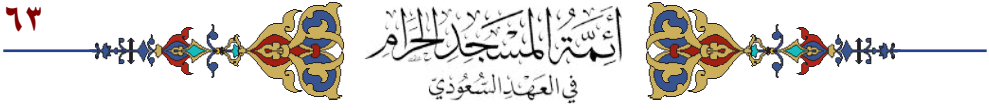 ٦٣
أَئِمَّةُ المَسْجِدِ الحَرَامِ
فِي العَهْدِ السُّعُودِيّ